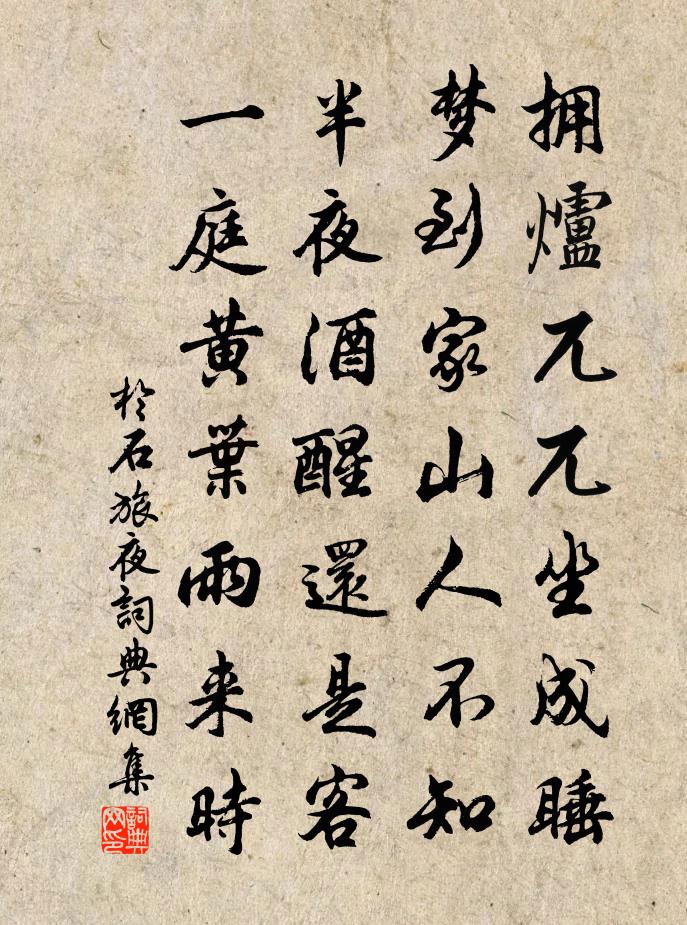 拥爐兀兀坐成睡
梦到家山人不知
半夜酒醒還是客
一庭黄葉雨来時
於石旅夜詞典網集
詞典网印